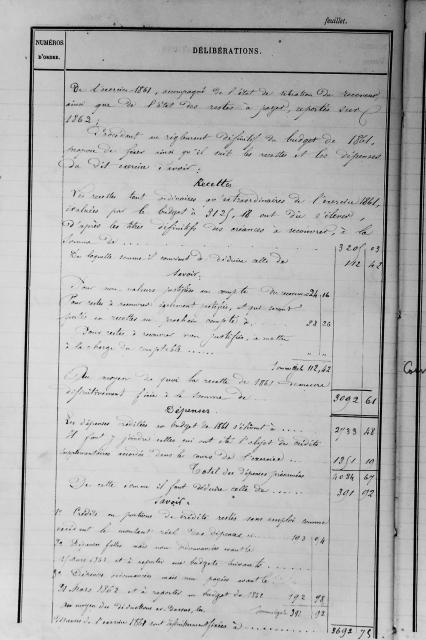 feuillet.
NUMÉROS
D'ORDRE.
DÉLIBÉRATIONS.
De l'exercice 1861, accompagné de l'état de situation du receveur
ainsi que de l'état des restes à payer, reportés sur
1862;
Procédant au règlement définitif du budget de 1861,
propose de fixer ainsi qu'il suit les recettes et les dépenses
du dit exercice Savoir:
Recettes
Les recettes tant ordinaires qu'extraordinaires de l'exercice 1861,
évaluées par le budget à 3125,18 ont dû s'élever,
d'après les titres définitifs des créances à recouvrer, à la
somme de 3205 03
De laquelle somme il convient de déduire celle de 112 42
Savoir:
Pour non valeurs justifiées au compte du receveur 24 16
Pour restes à recouvrer également justifiés, et qui seront
portés en recettes au prochain compte à 88 26
Pour restes à recouvrer non justifiés, à mettre
à la charge du comptable
Somme égale 112,42
Au moyen de quoi la recette de 1861 demeure
définitivement fixée à la somme de 3092 61
Dépenses
Les dépenses créditées au budget de 1861 s'élèvent à 2733 48
Il faut y joindre celles qui ont été l'objet de crédits
supplémentaires accordés dans le cours de l'exercice 1351 19
Total des dépenses présumées 4084 67
De cette somme il faut déduire celle de 391 92
Savoir:
1° Crédits ou portions de crédits restés sans emploi comme
excédent le montant réel des dépenses 193 94
2° Dépenses faites mais non ordonnancées avant le
mars 1862 et à reporter aux budgets suivants
3° Dépenses ordonnancées mais non payées avant le
31 mars 1862 et à reporter au budget de 1862 192 98
Au moyen des déductions ci-dessus, les Somme égale 391 92
dépenses de l'exercice 1861 sont définitivement fixées à 3692 75